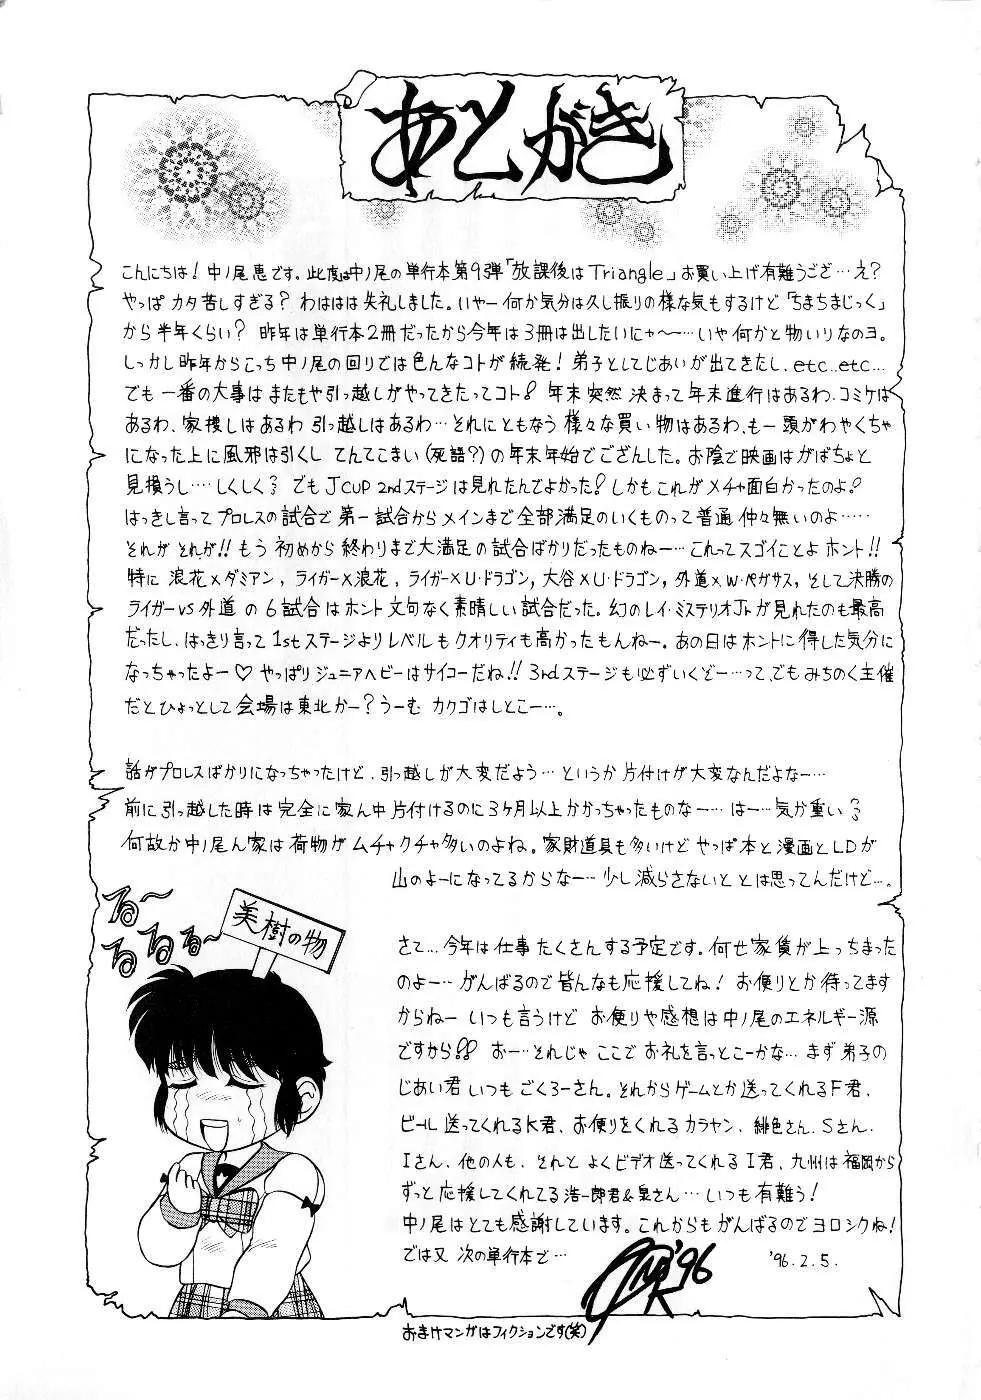 あとがき
こんにちは!中ノ尾恵です。此度は中ノ尾の単行本第9弾「放課後はTriangle」お買い上げ有難うござ…え?
やっぱ カタ苦しすぎる? わははは失礼しました。いやー何か気分は久し振りの様な気もするけど「ちまちまじっく」
から半年くらい? 昨年は単行本2冊だったから今年は3冊は出したいにゃ〜〜…いや何かと物いりなのヨ。
しっかし昨年からこっち中ノ尾の回りでは色んなコトが続発! 弟子としてじあいが出てきたし、etc..etc…
でも 一番の大事は またもや引っ越しがやってきたってコト! 年末突然決まって年末進行はあるわ、コミケは
あるわ、家捜しはあるわ 引っ越しはあるわ…それにともなう様々な買い物はあるわ、もー頭がわやくちゃ
になった上に風邪は引くし てんてこまい(死語?)の年末年始でござんした。お陰で映画はがばちょと
見損うし……しくしく でも J CUP 2ndステージは見れたんでよかった! しかもこれがメチャ面白かったのよ!
はっきし言ってプロレスの試合で第一試合からメインまで全部満足のいくものって普通仲々無いのよ……
それが それが!! もう 初めから終わりまで大満足の試合ばかりだったものねー…これってスゴイことよホント!!
特に 浪花×ダミアン, ライガー×浪花, ライガー×U・ドラゴン, 大谷×U・ドラゴン, 外道×W・ペガサス, そして決勝の
ライガーvs外道 の6試合はホント文句なく素晴しい試合だった。幻のレイ・ミステリオJrが見れたのも最高
だったし、はっきり言って 1stステージよりレベルもクオリティも高かったもんねー。あの日はホントに得した気分に
なっちゃったよー♡ やっぱりジュニアヘビーはサイコーだね!! 3rdステージも必ずいくぞー…って、でもみちのく主催
だとひょっとして会場は東北かー?うーむ カクゴはしとこー…。
話がプロレスばかりになっちゃったけど、引っ越しが大変だよう…というか片付けが大変なんだよなー…
前に引っ越した時は完全に家ん中片付けるのに3ヶ月以上かかっちゃったものなー…はー…気が重い
何故か中ノ尾ん家は荷物がムチャクチャ多いのよね。家財道具も多いけど やっぱ本と漫画とLDが
山のよーになってるからなー…少し減らさないと とは思ってんだけど…。
る〜
るるる〜
美樹の物
さて…今年は仕事たくさんする予定です。何せ家賃が上っちまった
のよー…がんばるので皆んなも応援してね! お便りとか待ってます
からねー いつも言うけど お便りや感想は中ノ尾のエネルギー源
ですから!! おー…それじゃ ここで お礼を言っとこーかな…まず弟子の
じあい君 いつも ごくろーさん。それからゲームとか送ってくれるF君、
ビール送ってくれるK君、お便りをくれるカラヤン、緋色さん、Sさん、
Iさん、他の人も、それと よくビデオ送ってくれるI君、九州は福岡から
ずっと応援してくれてる浩一郎君&泉さん…いつも有難う!
中ノ尾はとても感謝しています。これからもがんばるのでヨロシクね!
では又 次の単行本で…
'96
'96.2.5.
おまけマンガはフィクションです(笑)